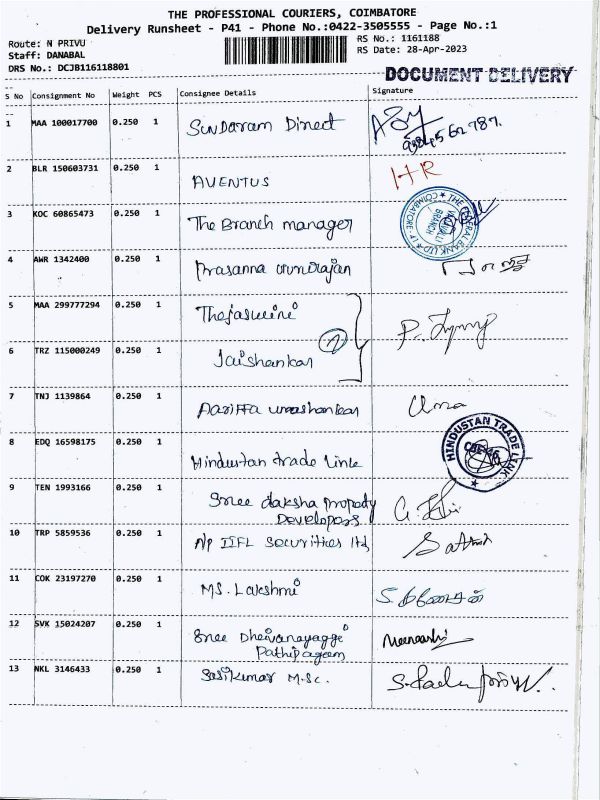 THE PROFESSIONAL COURIERS, COIMBATORE
Delivery Runsheet - P41 - Phone No.:0422-3505555 - Page No.:1
Route: N PRIVU
RS No.: 1161188
Staff: DANABAL
RS Date: 28-Apr-2023
DRS No.: DCJB116118801
DOCUMENT DELIVERY
S No Consignment No Weight PCS Consignee Details Signature
1 MAA 100017700 0.250 1 Sundaram Direct
2 BLR 150603731 0.250 1 AVENTUS HR
3 KOC 60865473 0.250 1 The Branch manager
4 AWR 1342400 0.250 1 Prasanna
5 MAA 299777294 0.250 1 Thejaswini
6 TRZ 115000249 0.250 1 Jaishankar
7 TNJ 1139864 0.250 1 umashankar Uma
8 EDQ 16598175 0.250 1 Hindustan trade Link
HINDUSTAN TRADE LINK
9 TEN 1993166 0.250 1 Sree daksha Property
Developers
10 TRP 5859536 0.250 1 IIFL Securities ltd
11 COK 23197270 0.250 1 MS. Lakshmi
12 SVK 15024207 0.250 1 Sree
Meenakshi
13 NKL 3146433 0.250 1 Sasikumar M.Sc.